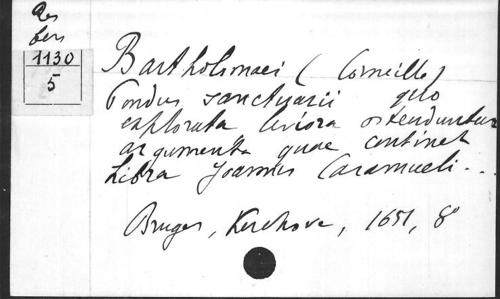 Res
Lov
1130
5
Bartholomaei (Corneille)
Pondus sanctuarii quo
explorata leviora ostenduntur
argumenta quae continet
Libra Joannis Caramueli...
Bruges, Kerchove, 1651, 8°